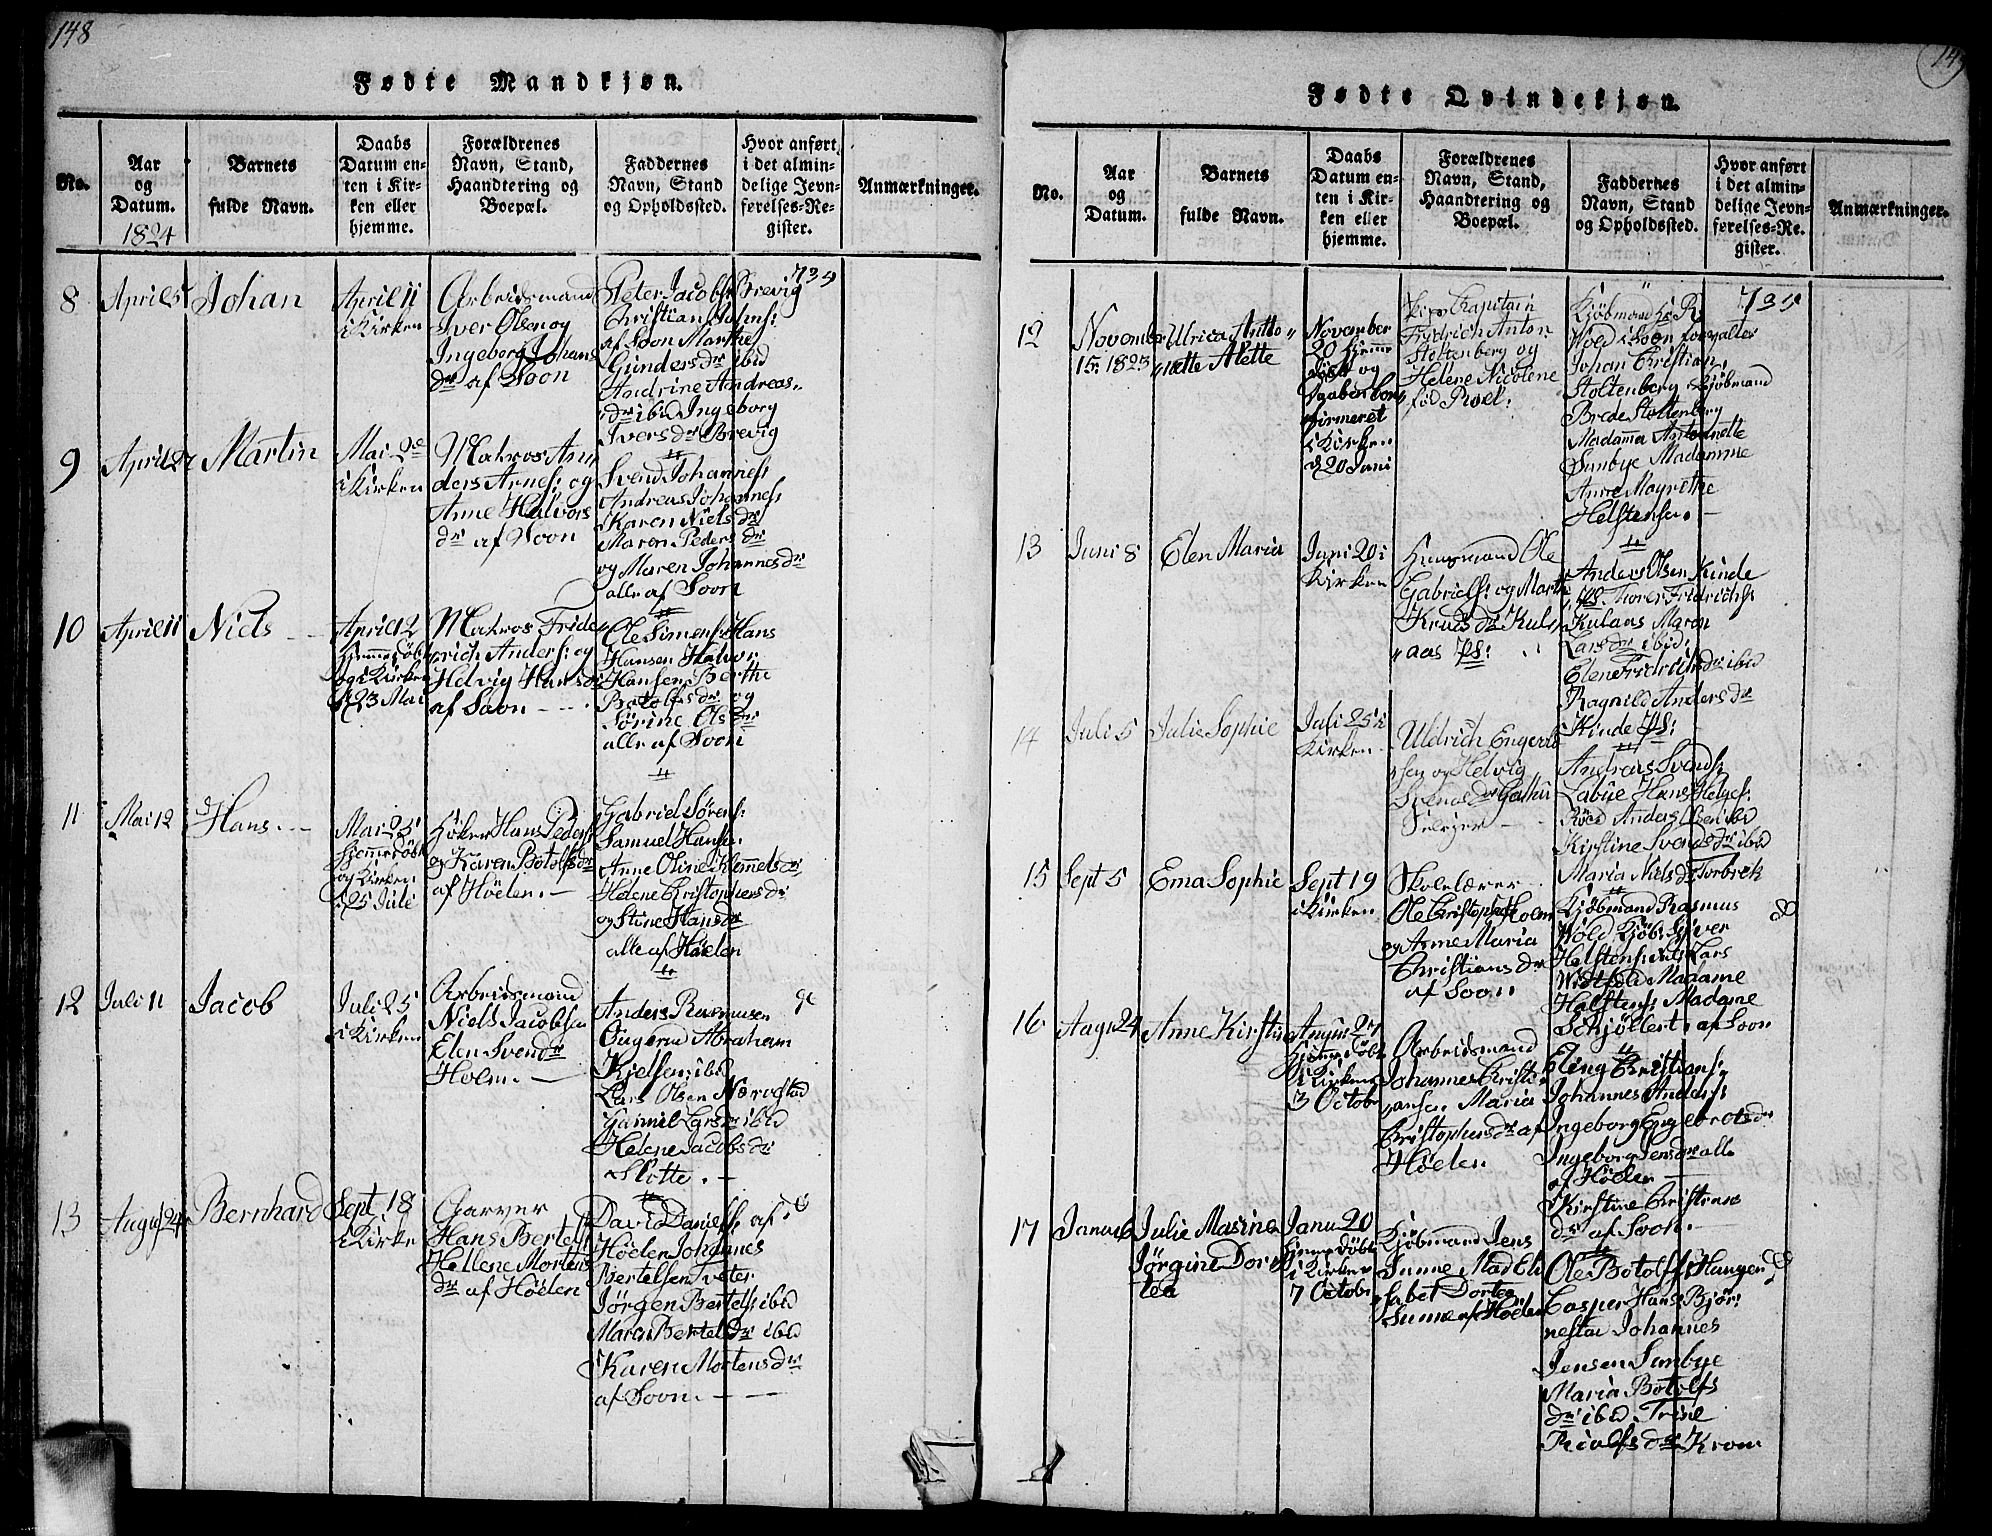 148
Fødte Mandkjøn.
No.
Aar
og
Datum.
1824
Barnets
fulde Navn.
Daabs
Datum en-
ten i Kir-
ken eller
hjemme.
Forældrenes
Navn, Stand,
Haandtering og
Boepæl.
Faddernes
Navn, Stand
og Opholdssted.
Hvor anført
i det almin-
delige Jevn-
førelses-Re-
gister.
Anmærkninger.
8
April 5
Johan
April 11
i Kirken
Arbeidsmand
Iver Olsen og
Ingeborg Johans
dr af Soon
Peter Jacobs: Brevig
Christian Johns:
af Soon Marthe
Gundersdr ibid
Andrine Andreas„
dr ibid Ingeborg
Iversdr Brevig
739
9
April 27
Martin
Mai 2
i Kirken
Matros An„
ders Arnes: og
Anne Halvors
dr af Soon
Svend Johannes:
Andreas Johannes:
Karen Niels dr
Maren Peders dr
og Maren Johannes dr
alle af Soon
10
April 11
Niels
April 12
hjemmedøbt
og i Kirken
d 23 Mai
Matros Fride
rich Anders: og
Helvig Hansdr
af Soon
Ole Simens: Hans
Hansen Halvor
Hansen Berthe
Botolfs dr og
Sørine Ols dr
alle af Soon
11
Mai 12
Hans
Mai 25
hjemmedøbt
og i Kirken
d 25 Juli
Høker Hans Peders:
og Karen Botolfsdr
af Høelen
Gabriel Sørens:
Samuel Hansen
Anne Oline Klemmetsdr
Helene Christophersdr
og Stine Hansdr
alle af Høelen
12
Juli 11
Jacob
Juli 25
i Kirken
Arbeidsmand
Niels Jacobsen
Elen Svendsdr
Holm.
Anders Rasmusen
Abraham
Kielsen ibid
Lars Olsen
Larsdr ibid
Helene Jacobsdr
Slotte.
13
August 24
Bernhard
Sept 18
i Kirke
Garver
Hans Bertels:
Hellene Mortens
dr af Høelen
David Daniels: af
Høelen Johannes
Bertelsen Tveter
Jørgen Bertels: ibid
Maren Bertels dr ibid
Karen Mortens dr
af Soon.
149
Fødte Qvindekjøn.
No.
Aar
og
Datum.
Barnets
fulde Navn.
Daabs
Datum en-
ten i Kir-
ken eller
hjemme.
Forældrenes
Navn, Stand,
Haandtering og
Boepæl.
Faddernes
Navn, Stand
og Opholdssted.
Hvor anført
i det almin-
delige Jevn-
førelses-Re-
gister.
Anmærkninger.
12
November
15. 1823
Ulrica Anto„
„nette Alette
November
20 hjemme
døbt og
Daaben
firmeret
i Kirken
d 20 Juni
Capitain
Fridrich Anton
Stoltenberg og
Helene Nicolene
fød Roel:
Kjøbmand Hr R
Wold i Soon
Johan Christian
Stoltenberg Kjøbmand
Brede Stoltenberg
Madamme Antonette
Sunbye Madamme
Anne Magrethe
Helstensen.
739
13
Juni 8
Elen Maria
Juni 20 i
Kirken
Huusmand Ole
Gabriels: og Marthe
Knuds dr Kul„
„aas Ps:
Anders Olsen Kinde
Ps. Torer Fridrichs:
Kulaas Maren
Lars dr ibid
Elen Fridrichsdr ibid
Ragnild Anders dr
Kinde Ps:
14
Juli 5
Julie Sophie
Juli 25 i
Kirken
Uldrich Engerts
sen og Helvig
Svendsdr
Andreas Svends:
Labue Hans Helges:
Anders Olsen ibid
Kirstine Svendsdr ibid
Maria Nielsdr Torbrek
15
Sept 5
Ema Sophie
Sept 19
i Kirken
Skolelærer
Ole Christophers: Holm
og Anne Maria
Christians dr
af Soon
Kjøbmand Rasmus
Wold Kjøb: Syver
Helstens: Lars
Madame
Halstens: Madame
Schjøllert. af Soon
16
Aagu 24
Anne Kirstine
Augus 27
hjemmedøbt
i Kirken
3 Octobr
Arbeidsmand
Johannes Christi„
„ansen Maria
Christophersdr af
Høelen
Eling Christians:
Johannes Anders:
Ingeborg Engebretsdr
Ingeborg Jensdr alle
af Høelen
Kirstine Christens
dr af Soon.
17
Janua 6
Julie Masine
Jørgine Doro
tea
Janu 20
hjemmedøbt
i Kirken
7 Octobr
Kjøbmand Jens
Sunne Mad Eli
sabet Dortea
Sunne af Høelen
Ole Botolfs: Haugen
Casper Hans: Bjør„
nestad Johannes
Jensen Sunbye
Maria Botolfs
dr ibid. Trine
Riolfs dr Krom